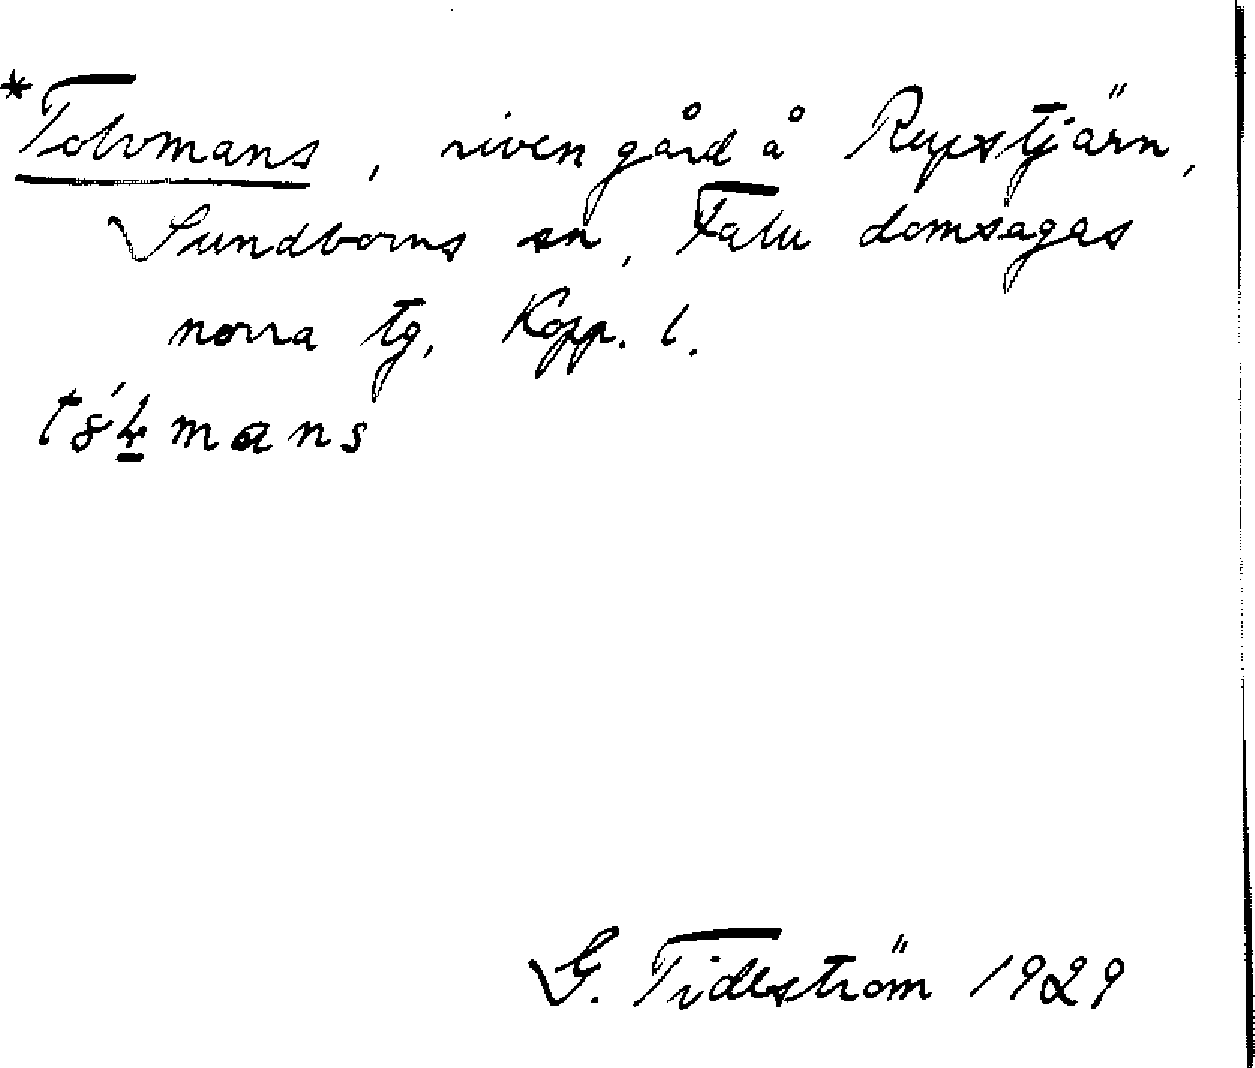 *Tolvmans, riven gård å Repstjärn,
Sundborns sn, Falu domsagas
norra tg, Kopp. l.
mans
G. Tideström 1929